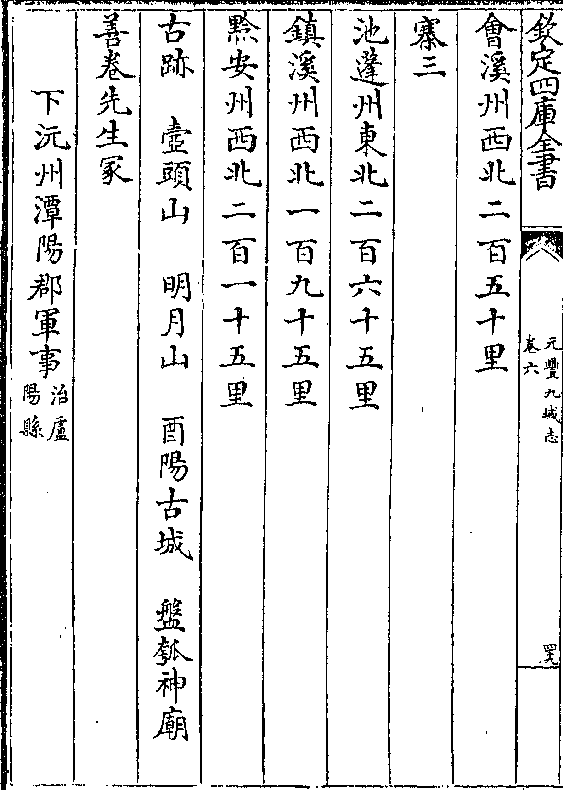 欽定四庫全書
元豐九域志
卷六
會溪州西北二百五十里
寨三
池蓬州東北二百六十五里
鎮溪州西北一百九十五里
黔安州西北二百一十五里
古跡　壺頭山　明月山　酉陽古城　盤瓠神廟
善卷先生冢
下沅州潭陽郡軍事治盧
陽縣